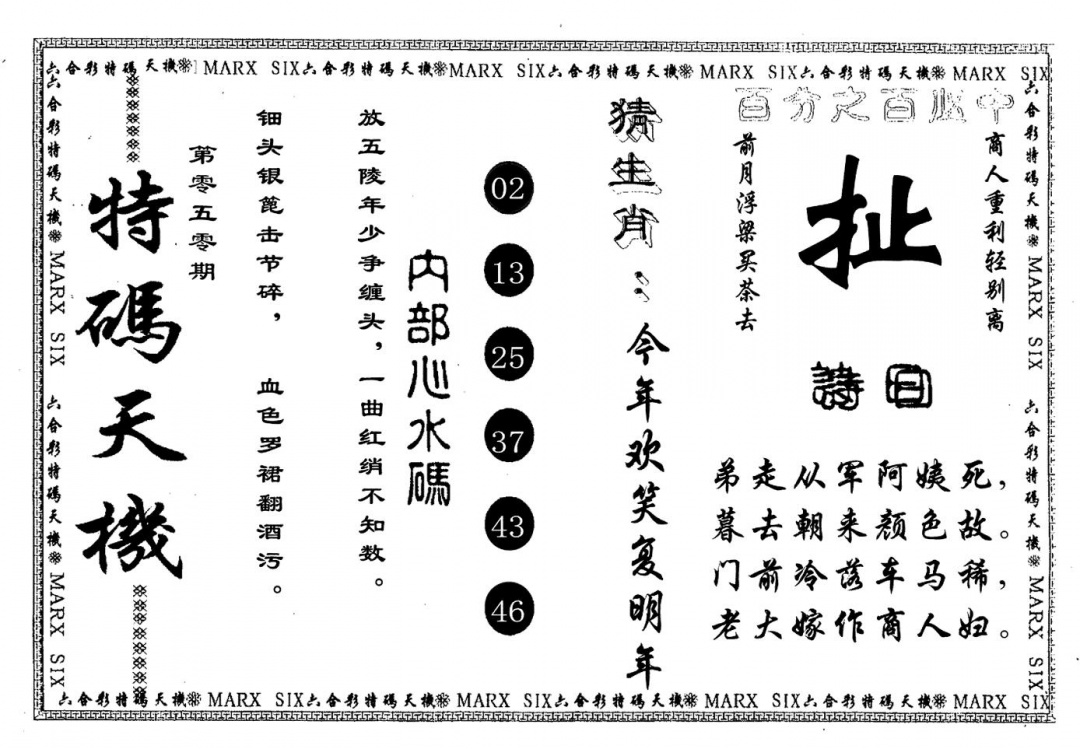 六合彩特碼天機 MARX SIX六合彩特碼天機MARX SIX六合彩特碼天機 MARX SIX六合彩特碼天機 MARX SIX
六合彩特碼天機 MARX SIX 六合彩特碼天機 MARX SIX
百分之百必中
商人重利轻别离
扯
前月浮梁买茶去
詩曰
弟走从军阿姨死，
暮去朝来颜色故。
门前冷落车马稀，
老大嫁作商人妇。
猜生肖：今年欢笑复明年
02
13
25
37
43
46
内部心水碼
放五陵年少争缠头，一曲红绡不知数。
钿头银篦击节碎， 血色罗裙翻酒污。
第零五零期
特碼天機
六合彩特碼天機 MARX SIX 六合彩特碼天機 MARX SIX
六合彩特碼天機 MARX SIX六合彩特碼天機 MARX SIX六合彩特碼天機 MARX SIX六合彩特碼天機 MARX SIX